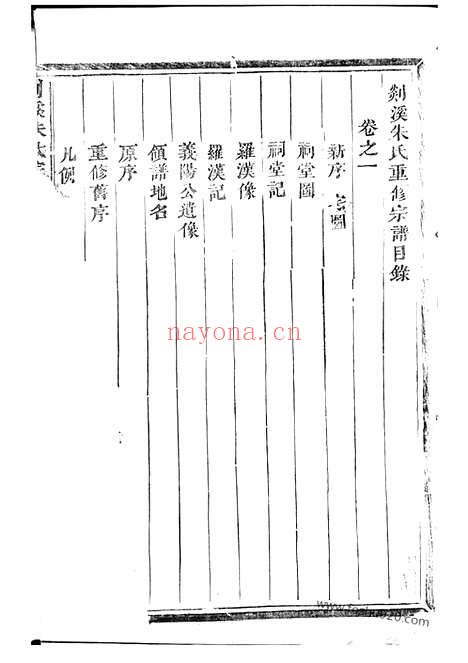 剡溪朱氏重修宗譜目錄
卷之一
新序
祠堂圖
祠堂記
羅漢像
羅漢記
義陽公遺像
領譜地名
原序
重修舊序
凡例
nayona.cn